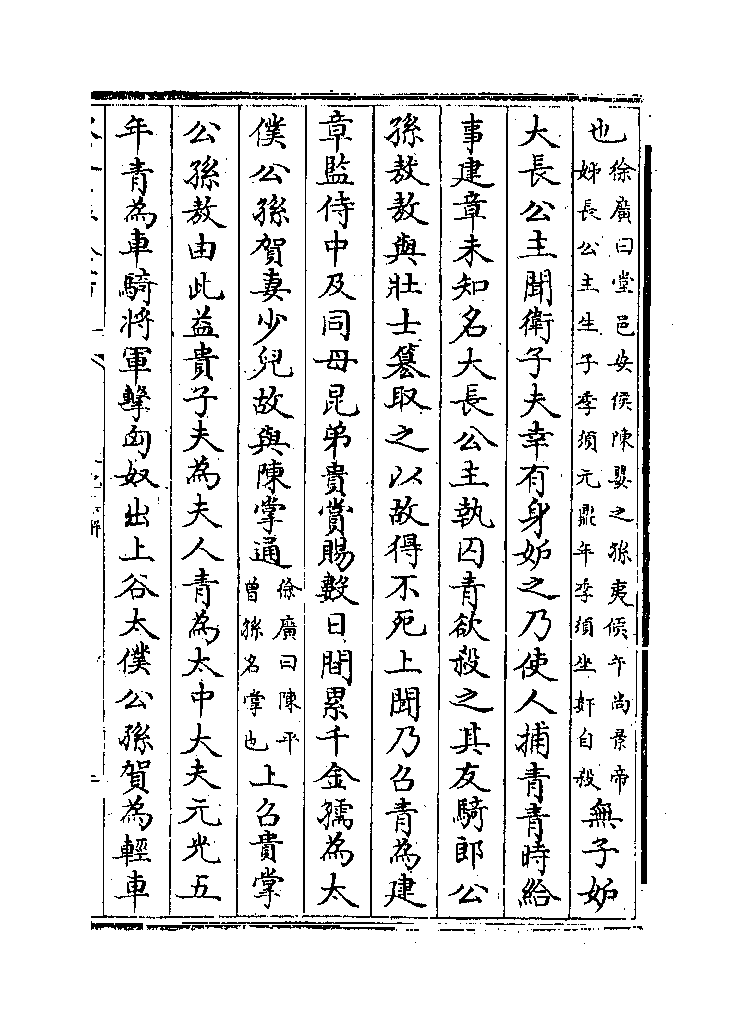 也徐廣曰堂邑安侯陳嬰之孫夷侯午尚景帝姊長公主生子季須元鼎年季須坐奸自殺無子妬
大長公主聞衛子夫幸有身妬之乃使人捕青青時給
事建章未知名大長公主執囚青欲殺之其友騎郎公
孫敖敖與壯士篡取之以故得不死上聞乃召青為建
章監侍中及同母昆弟貴賞賜數日間累千金孺為太
僕公孫賀妻少兒故與陳掌通徐廣曰陳平曾孫名掌也上召貴掌
公孫敖由此益貴子夫為夫人青為太中大夫元光五
年青為車騎將軍擊匈奴出上谷太僕公孫賀為輕車